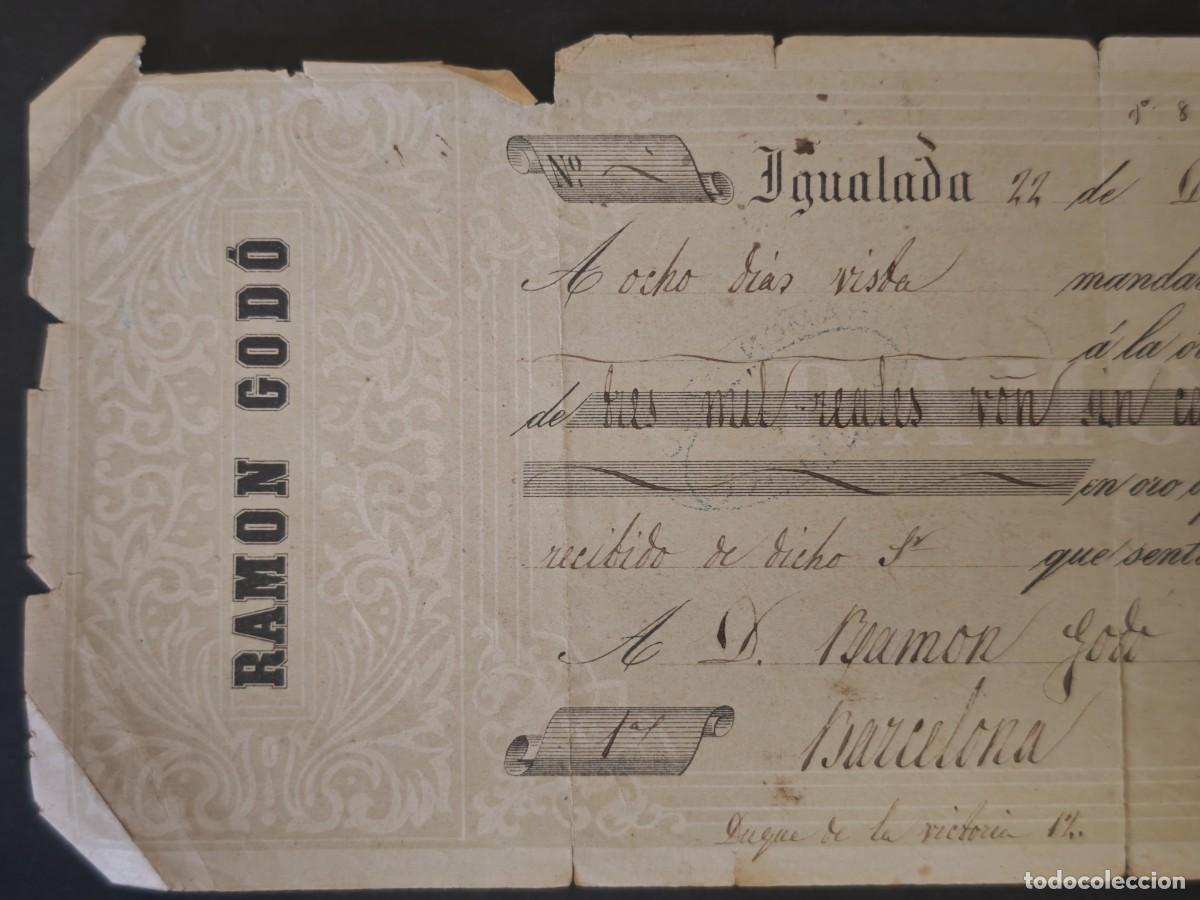 RAMON GODÓ
Nº. Igualada 22 de
A ocho dias vista mandar
á la or
de tres mil reales vōn un ce
en oro
recibido de dicho Sr que sent
A D. Ramon Godó
1ª Barcelona
Duque de la victoria
todocoleccion